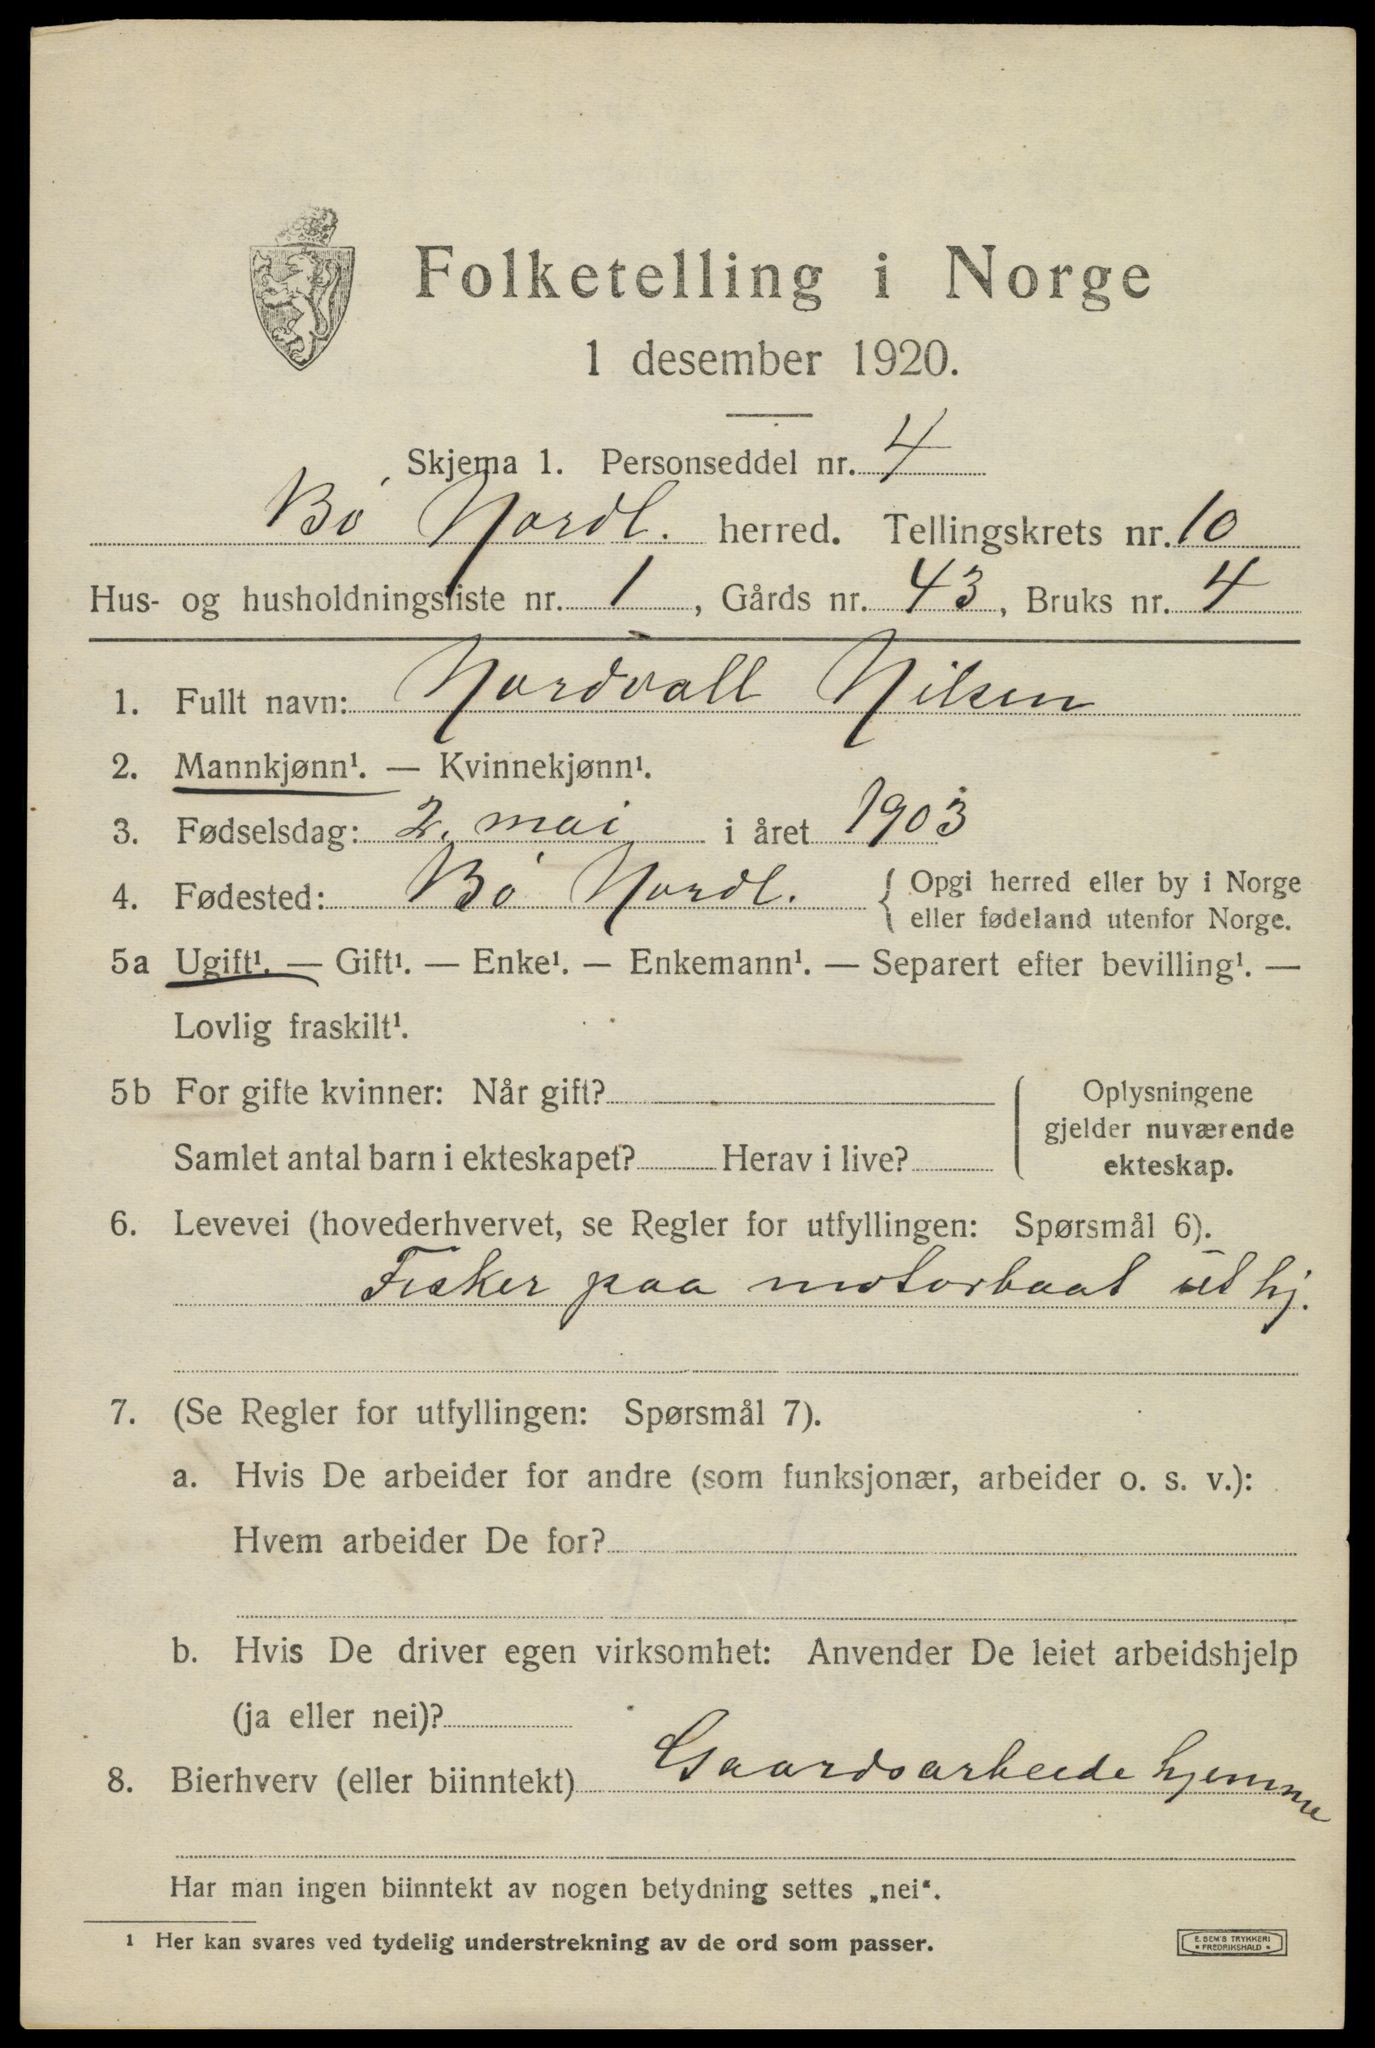 Folketelling i Norge
1 desember 1920.
Skjema 1. Personseddel nr. 4
Bø Nordl. herred. Tellingskrets nr. 10
Hus- og husholdningsliste nr. 1, Gårds nr. 43, Bruks nr. 4
1. Fullt navn: Nordvall Nilsen
2. Mannkjønn¹. — Kvinnekjønn¹.
3. Fødselsdag: 2. mai i året 1903
4. Fødested: Bø Nordl. { Opgi herred eller by i Norge
eller fødeland utenfor Norge.
5a Ugift¹. — Gift¹. — Enke¹. — Enkemann¹. — Separert efter bevilling¹. —
Lovlig fraskilt¹.
5b For gifte kvinner: Når gift?
Samlet antal barn i ekteskapet? Herav i live?
Oplysningene
gjelder nuværende
ekteskap.
6. Levevei (hovederhvervet, se Regler for utfyllingen: Spørsmål 6).
Fisker paa motorbaat
7. (Se Regler for utfyllingen: Spørsmål 7).
a. Hvis De arbeider for andre (som funksjonær, arbeider o. s. v.):
Hvem arbeider De for?
b. Hvis De driver egen virksomhet: Anvender De leiet arbeidshjelp
(ja eller nei)?
8. Bierhverv (eller biinntekt) Gaardsarbeide hjemme
Har man ingen biinntekt av nogen betydning settes „nei“.
¹ Her kan svares ved tydelig understrekning av de ord som passer.
E. SEM'S TRYKKERI
* FREDRIKSHALD *